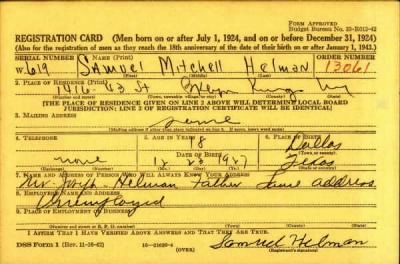 FORM APPROVED
Budget Bureau No.
REGISTRATION CARD (Men born on or after July 1, 1924, and on or before December 31, 1924)
(Also for the registration of men as they reach the 18th anniversary of the date of their birth on or after January 1, 1943.)
SERIAL NUMBER 1. NAME (Print) ORDER NUMBER
W-619 SAMUEL Mitchell HELMAN 13061
2. PLACE OF RESIDENCE (Print)
1416 63 St Kings
[THE PLACE OF RESIDENCE GIVEN ON LINE 2 ABOVE WILL DETERMINE LOCAL BOARD
JURISDICTION; LINE 2 OF REGISTRATION CERTIFICATE WILL BE IDENTICAL]
3. MAILING ADDRESS
Same
4. TELEPHONE 5. AGE IN YEARS 6. PLACE OF BIRTH
18 Dallas
DATE OF BIRTH
none 12 23 Texas
7. NAME AND ADDRESS OF PERSON WHO WILL ALWAYS KNOW YOUR ADDRESS
Mr. Helman Father Same address
8. EMPLOYER'S NAME AND ADDRESS
Unemployed
9. PLACE OF EMPLOYMENT OR BUSINESS
I AFFIRM THAT I HAVE VERIFIED ABOVE ANSWERS AND THAT THEY ARE TRUE.
DSS Form 1 (OVER) Samuel Helman
(Registrant's signature)